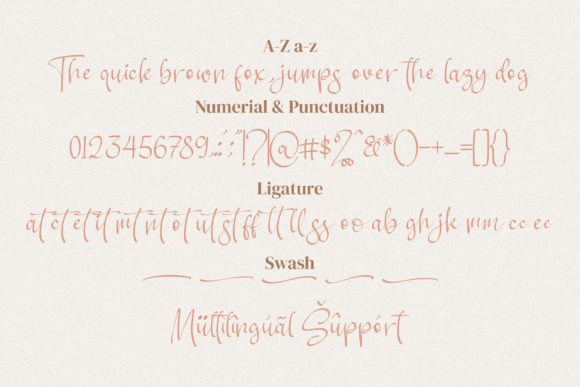 A-Z a-z
The quick brown fox, jumps over the lazy dog
Numerial & Punctuation
0123456789,.:;"!?|@#$%^&*()-+_=[]{}
Ligature
at ct et it mt nt ot ut st ff lt ll ss oo ab gh jk mm cc ee
Swash
Mültilîngúãl Šûppórt